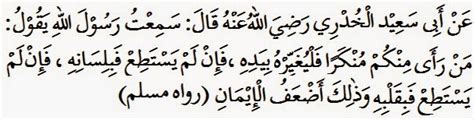 عَنْ أَبِى سَعِيْد الْخُدْرِي رَضِيَ اللهُ عَنْهُ قَالَ: سَمِعْتُ رَسُوْلَ اللهِ يَقُوْلُ:
مَنْ رَأَى مِنْكُمْ مُنْكَرًا فَلْيُغَيِّرْهُ بِيَدِهِ ،فَإِنْ لَمْ يَسْتَطِعْ فَبِلِسَانِهِ ، فَإِنْ لَمْ
يَسْتَطِعْ فَبِقَلْبِهِ وَذٰلِكَ أَضْعَفُ الْإِيْمَانِ (رواه مسلم)